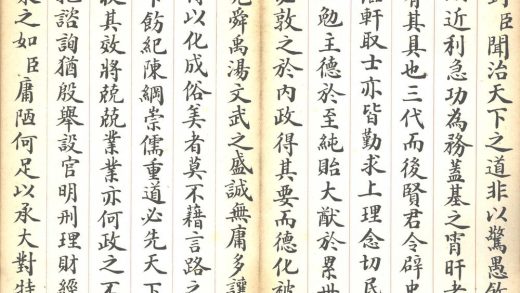 對臣聞治天下之道非以驚愚飭
近利急功為務蓋基之宵旰者
有其具也三代而後賢君令辟史
臨軒取士亦皆勤求上理念切民
勉主德於至純貽大猷於累世
敦之於內政得其要而德化被
堯舜禹湯文武之盛誠無庸多讓
得以化成俗美者莫不藉言路之
飭紀陳綱崇儒重道必先天下
收其效將兢兢業業亦何政之不
諮詢猶殷舉設官明刑理財經
之如臣庸陋何足以承大對特